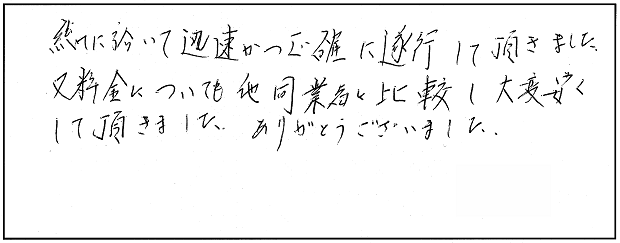 総てに於いて迅速かつ正確に遂行して頂きました。
又料金についても他同業者と比較し大変安く
して頂きました。ありがとうございました。